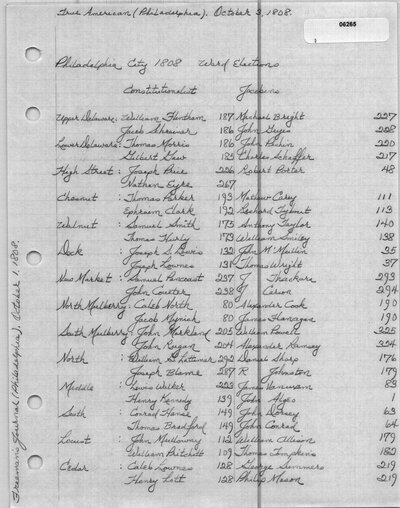 True American (Philadelphia). October 3, 1808.
06265
Philadelphia City 1808 Ward Elections
Constitutionalist Jacobins
Upper Delaware: William Flintham 187 Michael Bright 227
Jacob Shriner 186 John Geyer 228
Lower Delaware: Thomas Morris 186 John 220
Gilbert Gaw 185 Charles Schaffer 217
High Street: Joseph Price 226 Robert Porter 48
Nathan Eyre 267
Chesnut: Thomas Parker 193 Mathew Carey 111
Ephraim Clark 192 Leonard 113
Walnut: Samuel Smith 175 Anthony Taylor 140
Thomas 173 William Smiley 138
Dock: Joseph S. Lewis 132 John McMullin 35
Joseph Lownes 131 Thomas Wright 37
New Market: Samuel Pancoast 237 T Thackara 293
John Coulter 238 J Carson 294
North Mulberry: Caleb North 80 Alexander Cook 190
Jacob 80 James Flanagan 190
South Mulberry: John Markland 205 William Powell 325
John Rugan 204 Alexander Ramsey 324
North: William G. Latimer 292 Daniel Sharp 176
Joseph 287 R Johnston 179
Middle: Lewis Walker 223 James Vanuxem 83
Henry Kennedy 139 John 1
South: Conrad Hanse 149 John Dorsey 63
Thomas Bradford 149 John Conrad 64
Locust: John Mullowny 112 William Allison 179
William Pritchett 109 Thomas Tompkins 182
Cedar: Caleb Lownes 128 George Summers 219
Henry Lott 128 Philip Mason 219
Freeman's Journal (Philadelphia). October 1, 1808.